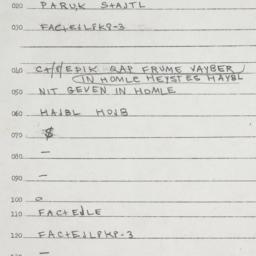 020 PARUK STAJTL
030 FACTEJLPKP-3
040 C+/P/EDIK GAP FRUME VAYBER
IN HOMLE HEYST ES HAYBL
050 NIT GEVEN IN HOMLE
060 HAJBL HOJB
070 $
080 —
090 —
100 0
110 FACTEJLE
120 FACTEJLPKP-3
130 —